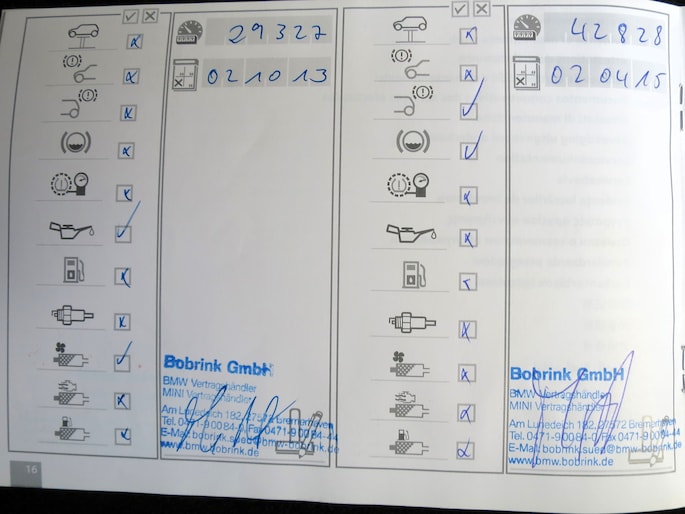 29327
02 10 13
Bobrink GmbH
BMW Vertragshändler
MINI Vertragshändler
Am Lunedeich 182, 27572 Bremerhaven
Tel. 0471-90084-0, Fax 0471-90084-44
E-Mail: bobrink.sued@bmw-bobrink.de
www.bmw.bobrink.de
16
42828
02 04 15
Bobrink GmbH
BMW Vertragshändler
MINI Vertragshändler
Am Lunedeich 182, 27572 Bremerhaven
Tel. 0471-90084-0, Fax 0471-90084-44
E-Mail: bobrink.sued@bmw-bobrink.de
www.bmw.bobrink.de